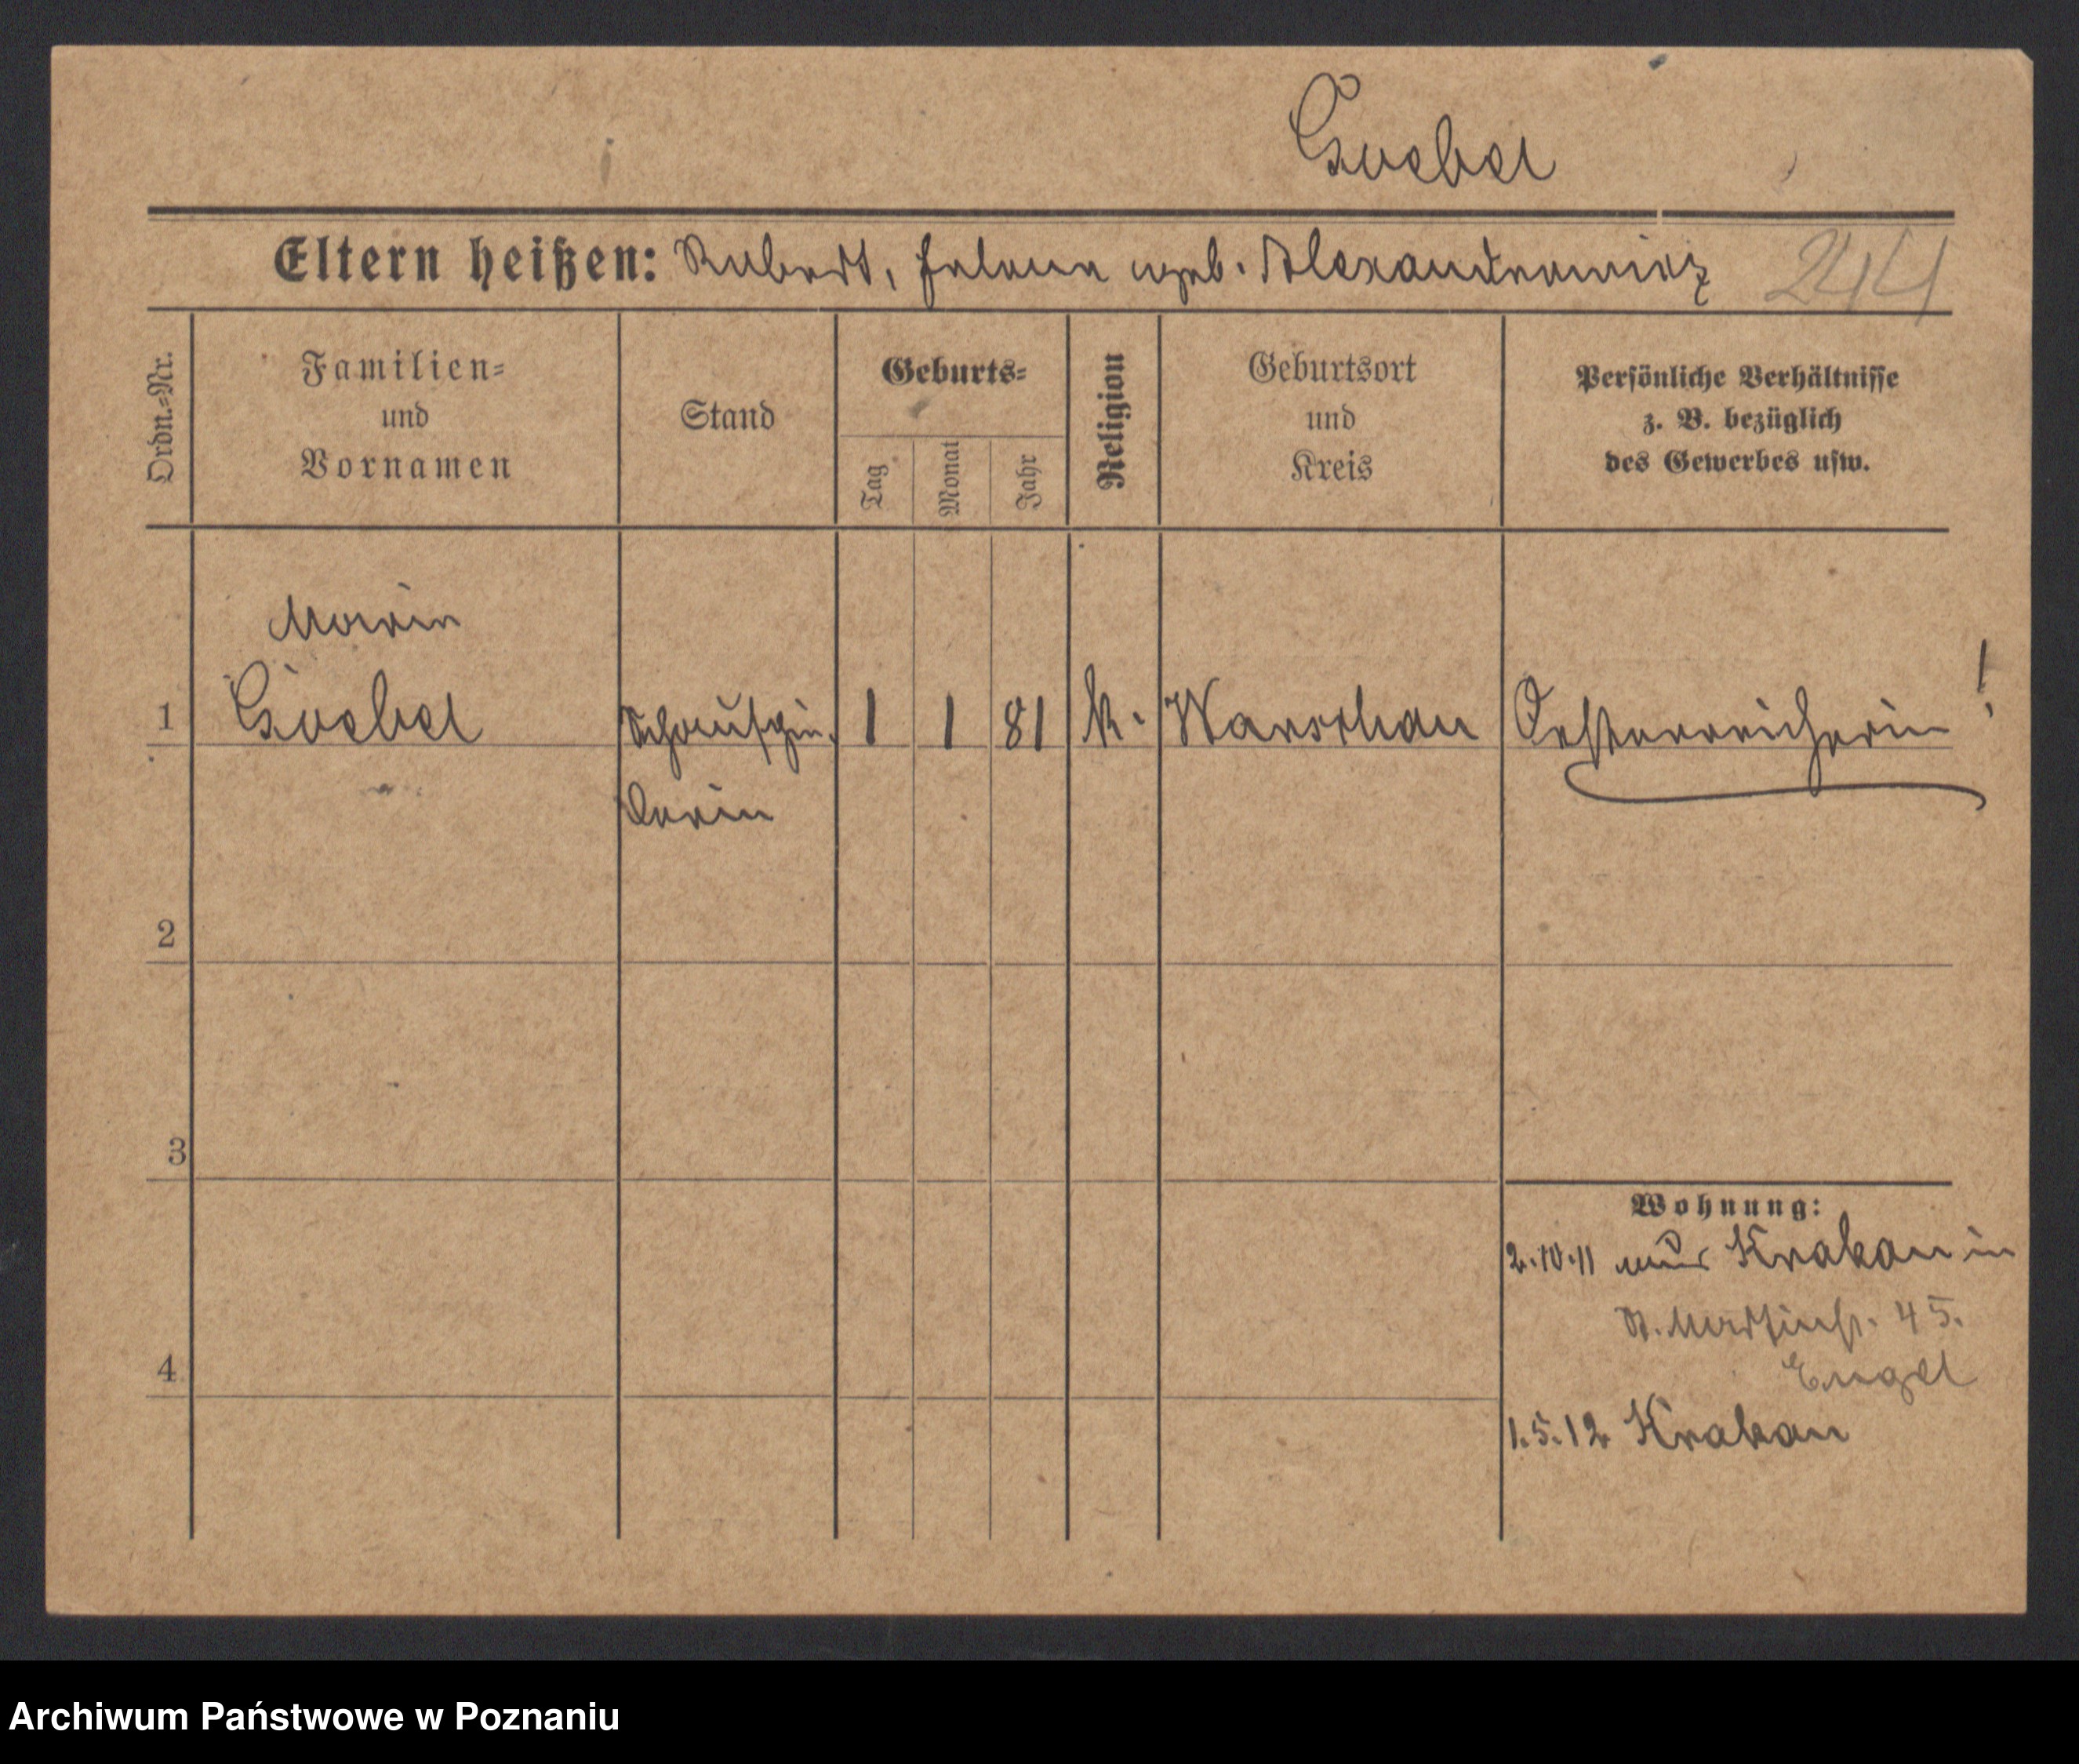 Goebel
Eltern heißen: Robert, Helena geb. Alexandrowicz 244
Ordn.-Nr.
Familien=
und
Vornamen
Stand
Geburts=
Tag
Monat
Jahr
Religion
Geburtsort
und
Kreis
Persönliche Verhältnisse
z. B. bezüglich
des Gewerbes usw.
Maria
1 Goebel Schauspie- 1 1 81 k. Warschau Oesterreicherin!
lerin
2
3
Wohnung:
2.10.11 aus Krakau in
St. Martinstr. 45.
Engel
4
1.5.12 Krakau
Archiwum Państwowe w Poznaniu